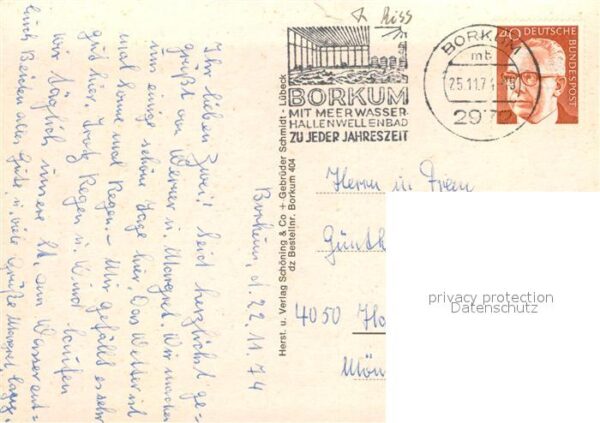 Borkum, d. 22.11.74
Ihr lieben Zwei! Seid herzlichst ge-
grüßt von Werner u. Margret. Wir machen
uns einige schöne Tage hier. Das Wetter ist
mal Sonne mal Regen. – Mir gefällt es sehr
gut hier, trotz Regen u. Wind laufen
wir täglich unsere St. am Wasser ent-
Euch Beiden alles Gute u. viele Grüße Margret,
Herst. u. Verlag Schöning & Co + Gebrüder Schmidt - Lübeck
dz Bestellnr. Borkum 404
Riss
BORKUM
MIT MEERWASSER-
HALLENWELLENBAD
ZU JEDER JAHRESZEIT
BORKUM
mt
25.11.74
2972
40
DEUTSCHE
BUNDESPOST
Herrn u. Frau
Günth
4050
Mön
privacy protection
Datenschutz